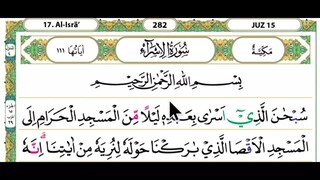 17. Al-Isrâ' 282 JUZ 15
مَكِّيَّة سُورَةُ الْإِسْرَاءِ اٰيَاتُهَا ١١١
بِسْمِ اللّٰهِ الرَّحْمٰنِ الرَّحِيْمِ
سُبْحٰنَ الَّذِيْٓ اَسْرٰى بِعَبْدِهٖ لَيْلًا مِّنَ الْمَسْجِدِ الْحَرَامِ اِلَى
الْمَسْجِدِ الْاَقْصَا الَّذِيْ بٰرَكْنَا حَوْلَهٗ لِنُرِيَهٗ مِنْ اٰيٰتِنَاۗ اِنَّهٗ